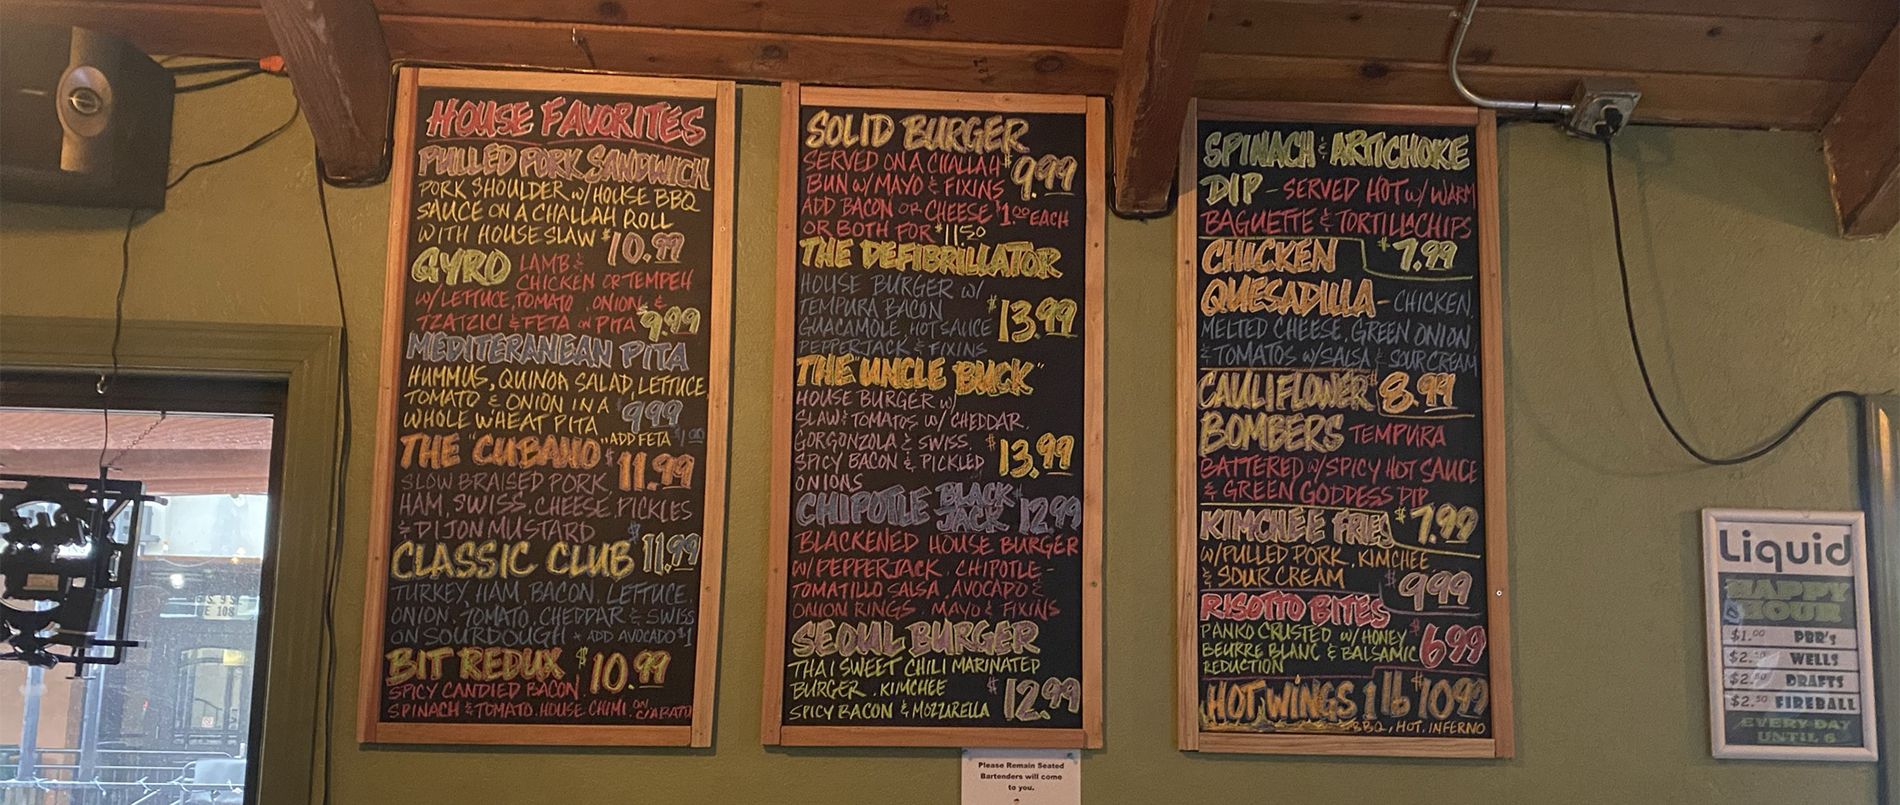 HOUSE FAVORITES
PULLED PORK SANDWICH
PORK SHOULDER w/HOUSE BBQ
SAUCE ON A CHALLAH ROLL
WITH HOUSE SLAW $10.99
GYRO LAMB &
CHICKEN OR TEMPEH
W/LETTUCE, TOMATO, ONION, &
TZATZICI & FETA ON PITA $9.99
MEDITERANEAN PITA
HUMMUS, QUINOA SALAD, LETTUCE,
TOMATO & ONION IN A
WHOLE WHEAT PITA $9.99
ADD FETA $1.00
THE "CUBANO" $11.99
SLOW BRAISED PORK,
HAM, SWISS, CHEESE, PICKLES
& DIJON MUSTARD
CLASSIC CLUB $11.99
TURKEY, HAM, BACON, LETTUCE,
ONION, TOMATO, CHEDDAR & SWISS
ON SOURDOUGH + ADD AVOCADO $1
BIT REDUX $10.99
SPICY CANDIED BACON,
SPINACH & TOMATO, HOUSE CHIMI, ON CIABATTA
SOLID BURGER
SERVED ON A CHALLAH $9.99
BUN W/ MAYO & FIXINS
ADD BACON OR CHEESE $1.00 EACH
OR BOTH FOR $11.50
THE DEFIBRILLATOR
HOUSE BURGER W/
TEMPURA BACON
GUACAMOLE, HOT SAUCE $13.99
PEPPERJACK & FIXINS
THE "UNCLE BUCK"
HOUSE BURGER w/
SLAW & TOMATOS W/ CHEDDAR,
GORGONZOLA & SWISS, $13.99
SPICY BACON & PICKLED
ONIONS
CHIPOTLE BLACK JACK $12.99
BLACKENED HOUSE BURGER
W/PEPPERJACK, CHIPOTLE-
TOMATILLO SALSA, AVOCADO &
ONION RINGS, MAYO & FIXINS
SEOUL BURGER
THAI SWEET CHILI MARINATED
BURGER, KIMCHEE $12.99
SPICY BACON & MOZZARELLA
SPINACH & ARTICHOKE
DIP - SERVED HOT w/ WARM
BAGUETTE & TORTILLA CHIPS
$7.99
CHICKEN
QUESADILLA - CHICKEN,
MELTED CHEESE, GREEN ONION
& TOMATOS W/SALSA & SOUR CREAM
$8.99
CAULIFLOWER
BOMBERS TEMPURA
BATTERED W/SPICY HOT SAUCE
& GREEN GODDESS DIP
$7.99
KIMCHEE FRIES
W/PULLED PORK, KIMCHEE
& SOUR CREAM $9.99
RISOTTO BITES
PANKO CRUSTED W/ HONEY $6.99
BEURRE BLANC & BALSAMIC
REDUCTION
HOT WINGS 1 lb $10.99
BBQ, HOT, INFERNO
Liquid
HAPPY
HOUR
$1.00 PBR's
WELLS
DRAFTS
$2.50 FIREBALL
EVERY DAY
UNTIL 6
Please Remain Seated
Bartenders will come
to you.